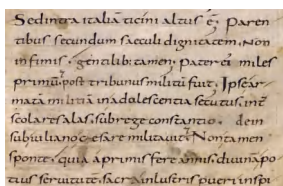 Sed intra italiā ticini altus ē; Paren
tibus secundum saeculi dignitatem, Non
infimis, gentilib; tamen; Pater ei miles
primū post tribunus militū fuit; Ipse ar
matā militiā in adolescentia secutus, int̄
scolares alas, sub rege constantio, dein
sub iuliano cęsare militauit; Non tamen
sponte, quia a primis fere annis, diuina po
tius seruitute, sacra inlustris pueri inspi